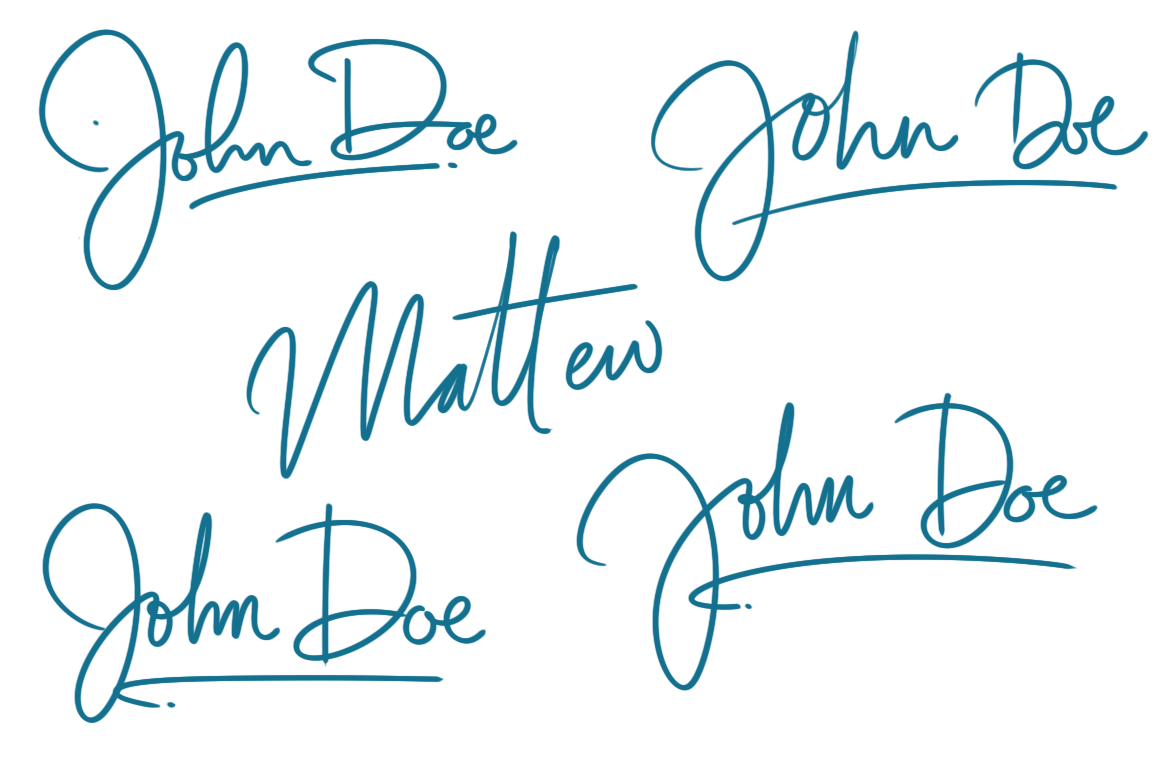 John Doe
John Doe
Mattew
John Doe
John Doe